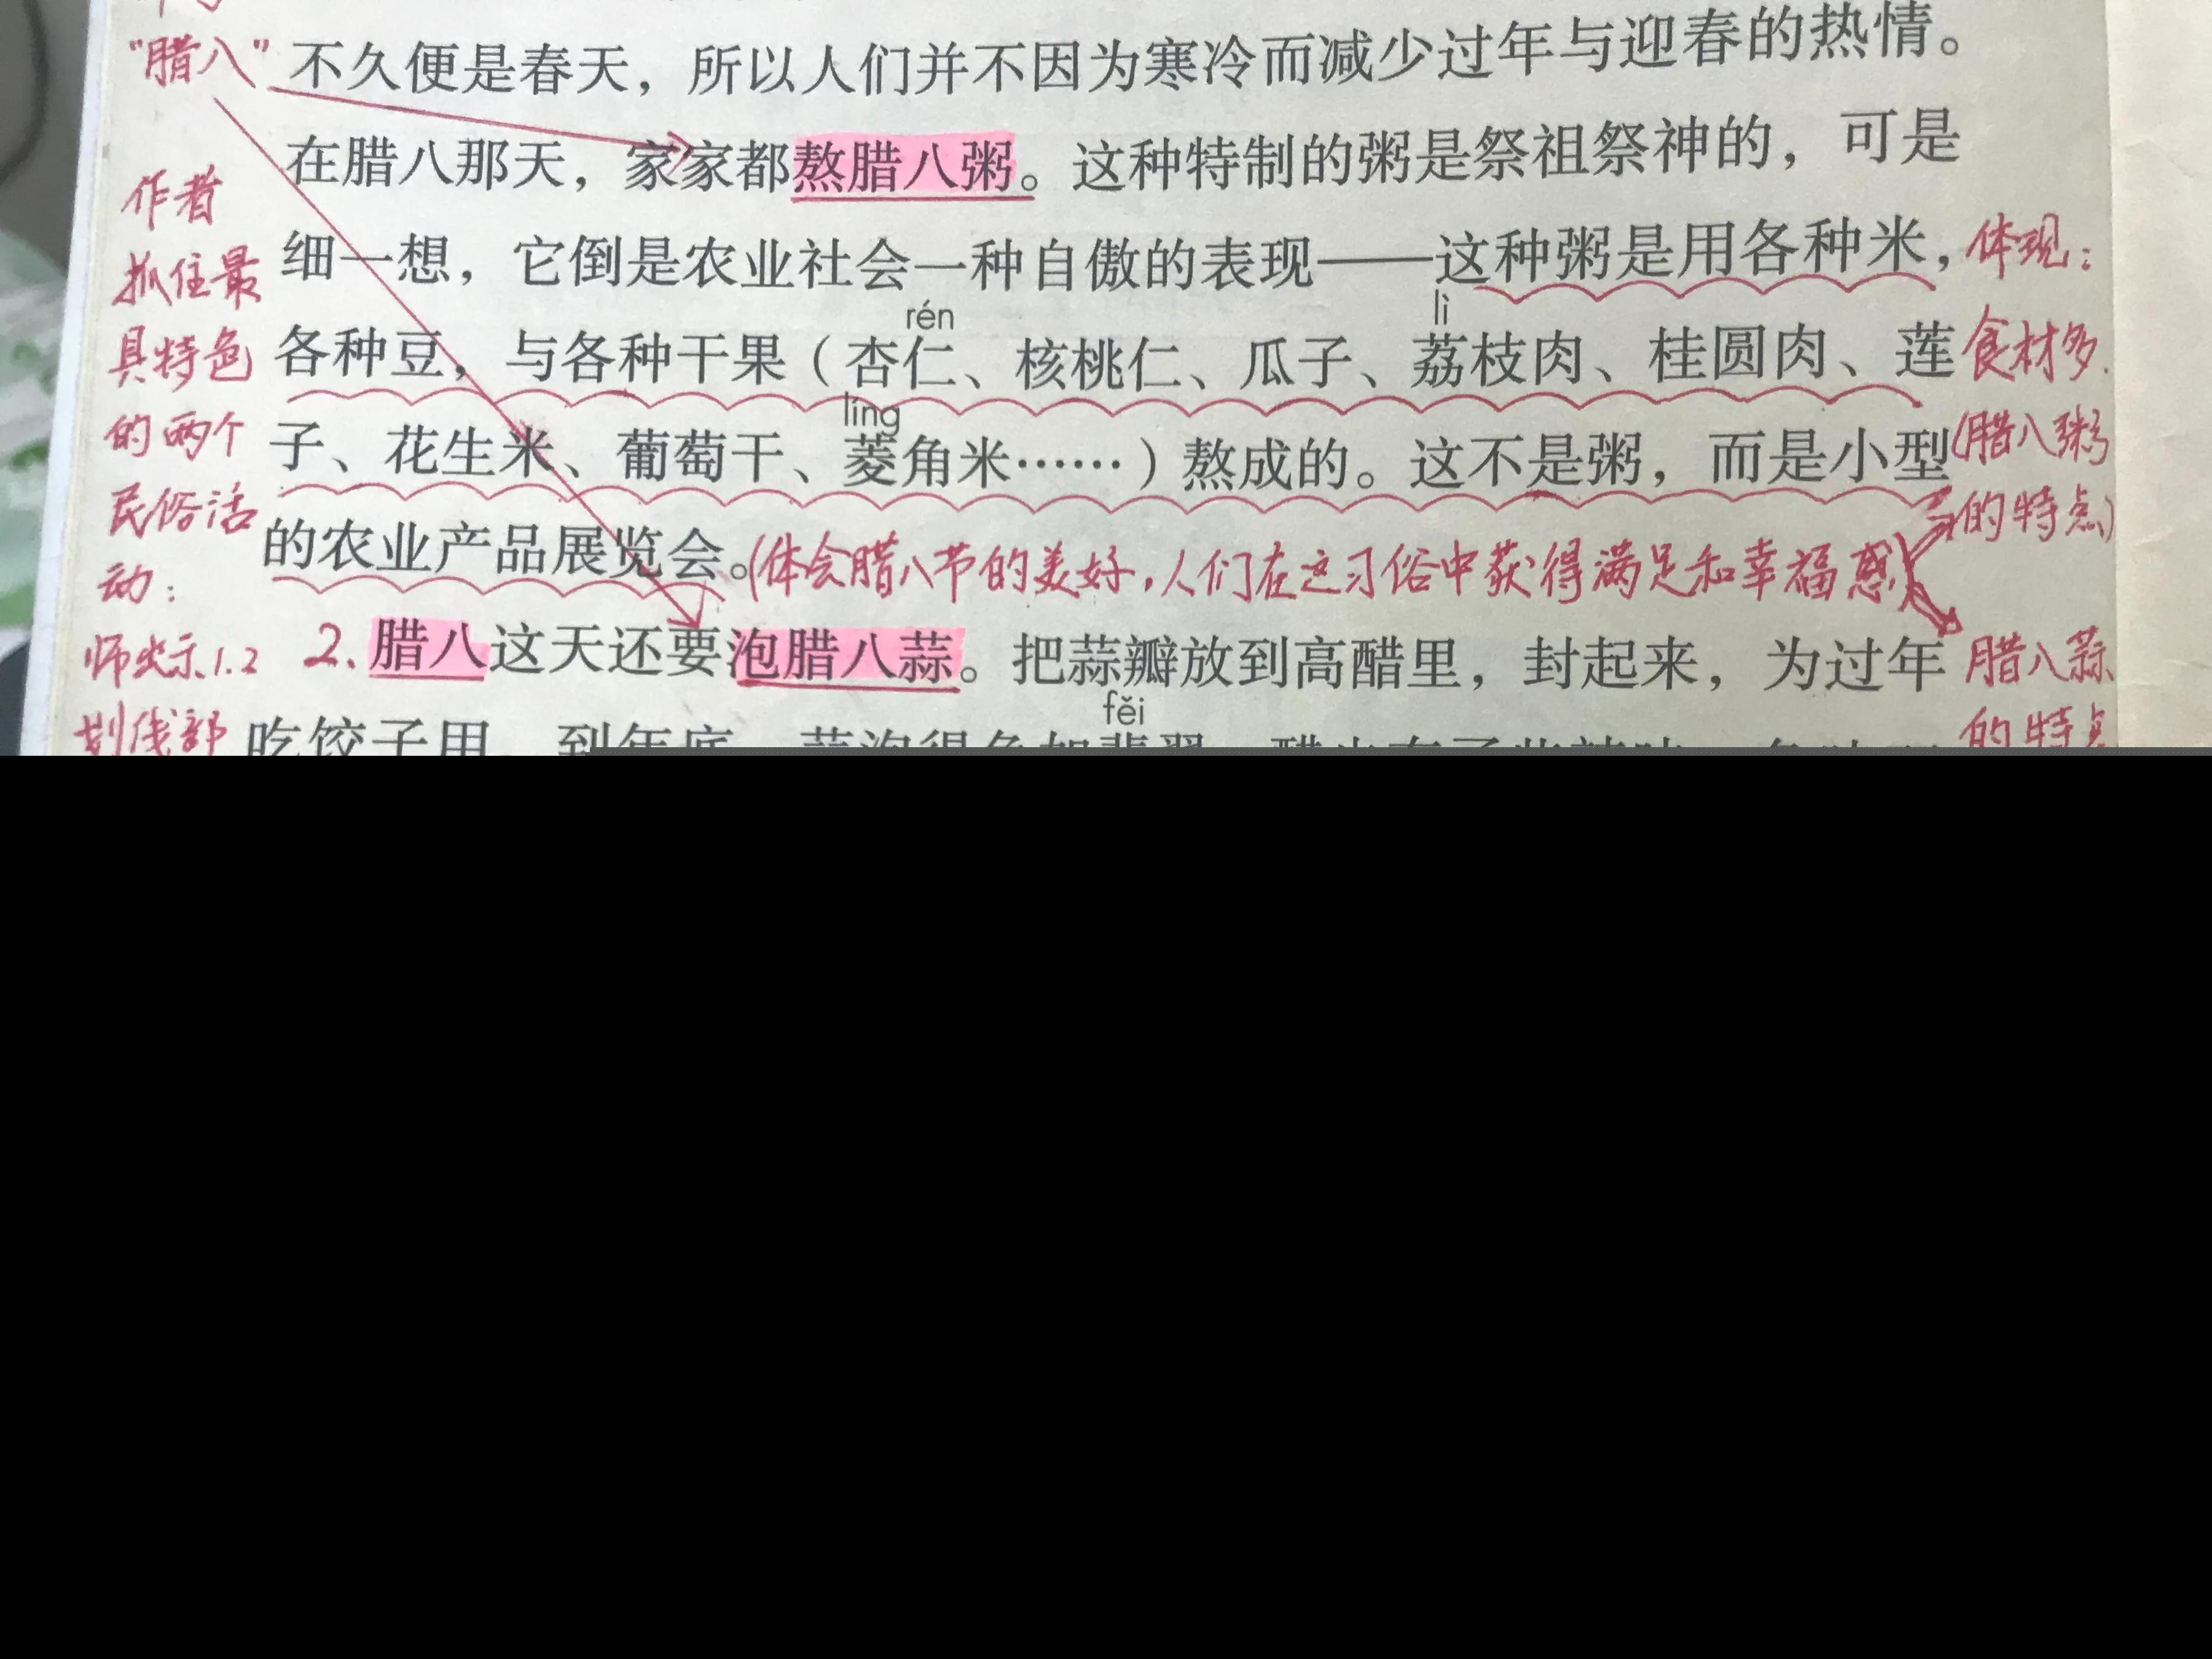 "腊八"
不久便是春天，所以人们并不因为寒冷而减少过年与迎春的热情。
在腊八那天，家家都熬腊八粥。这种特制的粥是祭祖祭神的，可是
细一想，它倒是农业社会一种自傲的表现——这种粥是用各种米，
rén
lì
各种豆，与各种干果（杏仁、核桃仁、瓜子、荔枝肉、桂圆肉、莲
líng
子、花生米、葡萄干、菱角米……）熬成的。这不是粥，而是小型
的农业产品展览会。(体会腊八节的美好，人们在这习俗中获得满足和幸福感)
2. 腊八这天还要泡腊八蒜。把蒜瓣放到高醋里，封起来，为过年
fěi
吃饺子用
作者
抓住最
具特色
的两个
民俗活
动：
师出示1.2
划线部
体现：
食材多.
(腊八粥
的特点)
腊八蒜
的特点